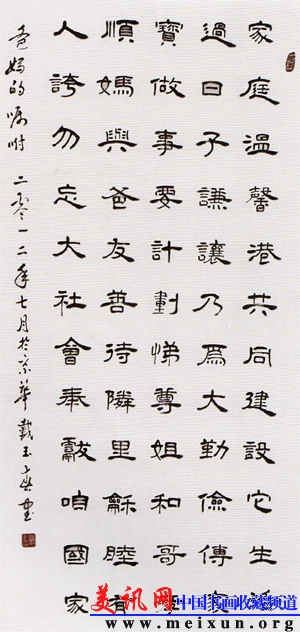 家庭溫馨港共同建設它生活
過日子謙讓乃爲大勤儉傳家
寶做事要計劃悌尊姐和哥孝
順媽與爸友善待隣里龢睦有
人誇勿忘大社會奉獻咱國家
爸媽的囑咐 二零一二年七月於京華戴玉書
美讯网 中国书画收藏频道
www.meixun.org